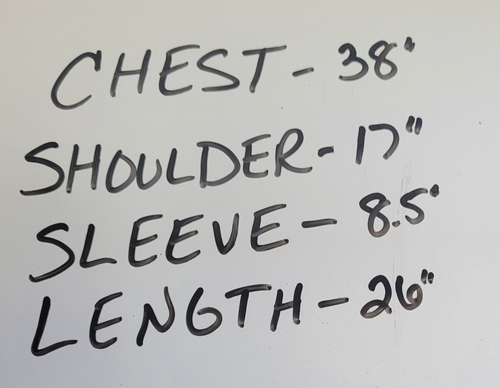 CHEST - 38"
SHOULDER - 17"
SLEEVE - 8.5"
LENGTH - 26"